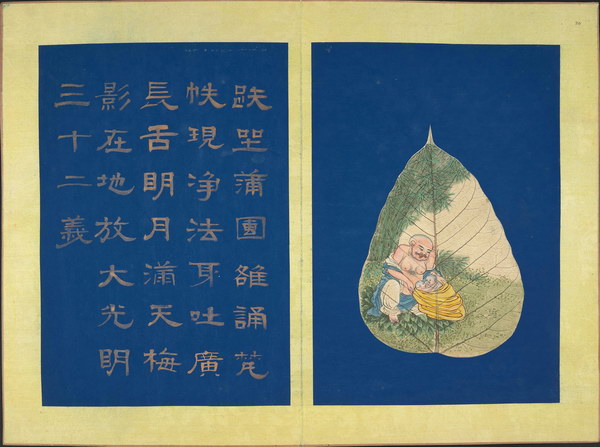 趺坐蒲團雒誦梵
帙現净法身吐廣
長舌明月滿天梅
影在地放大光明
三十二義